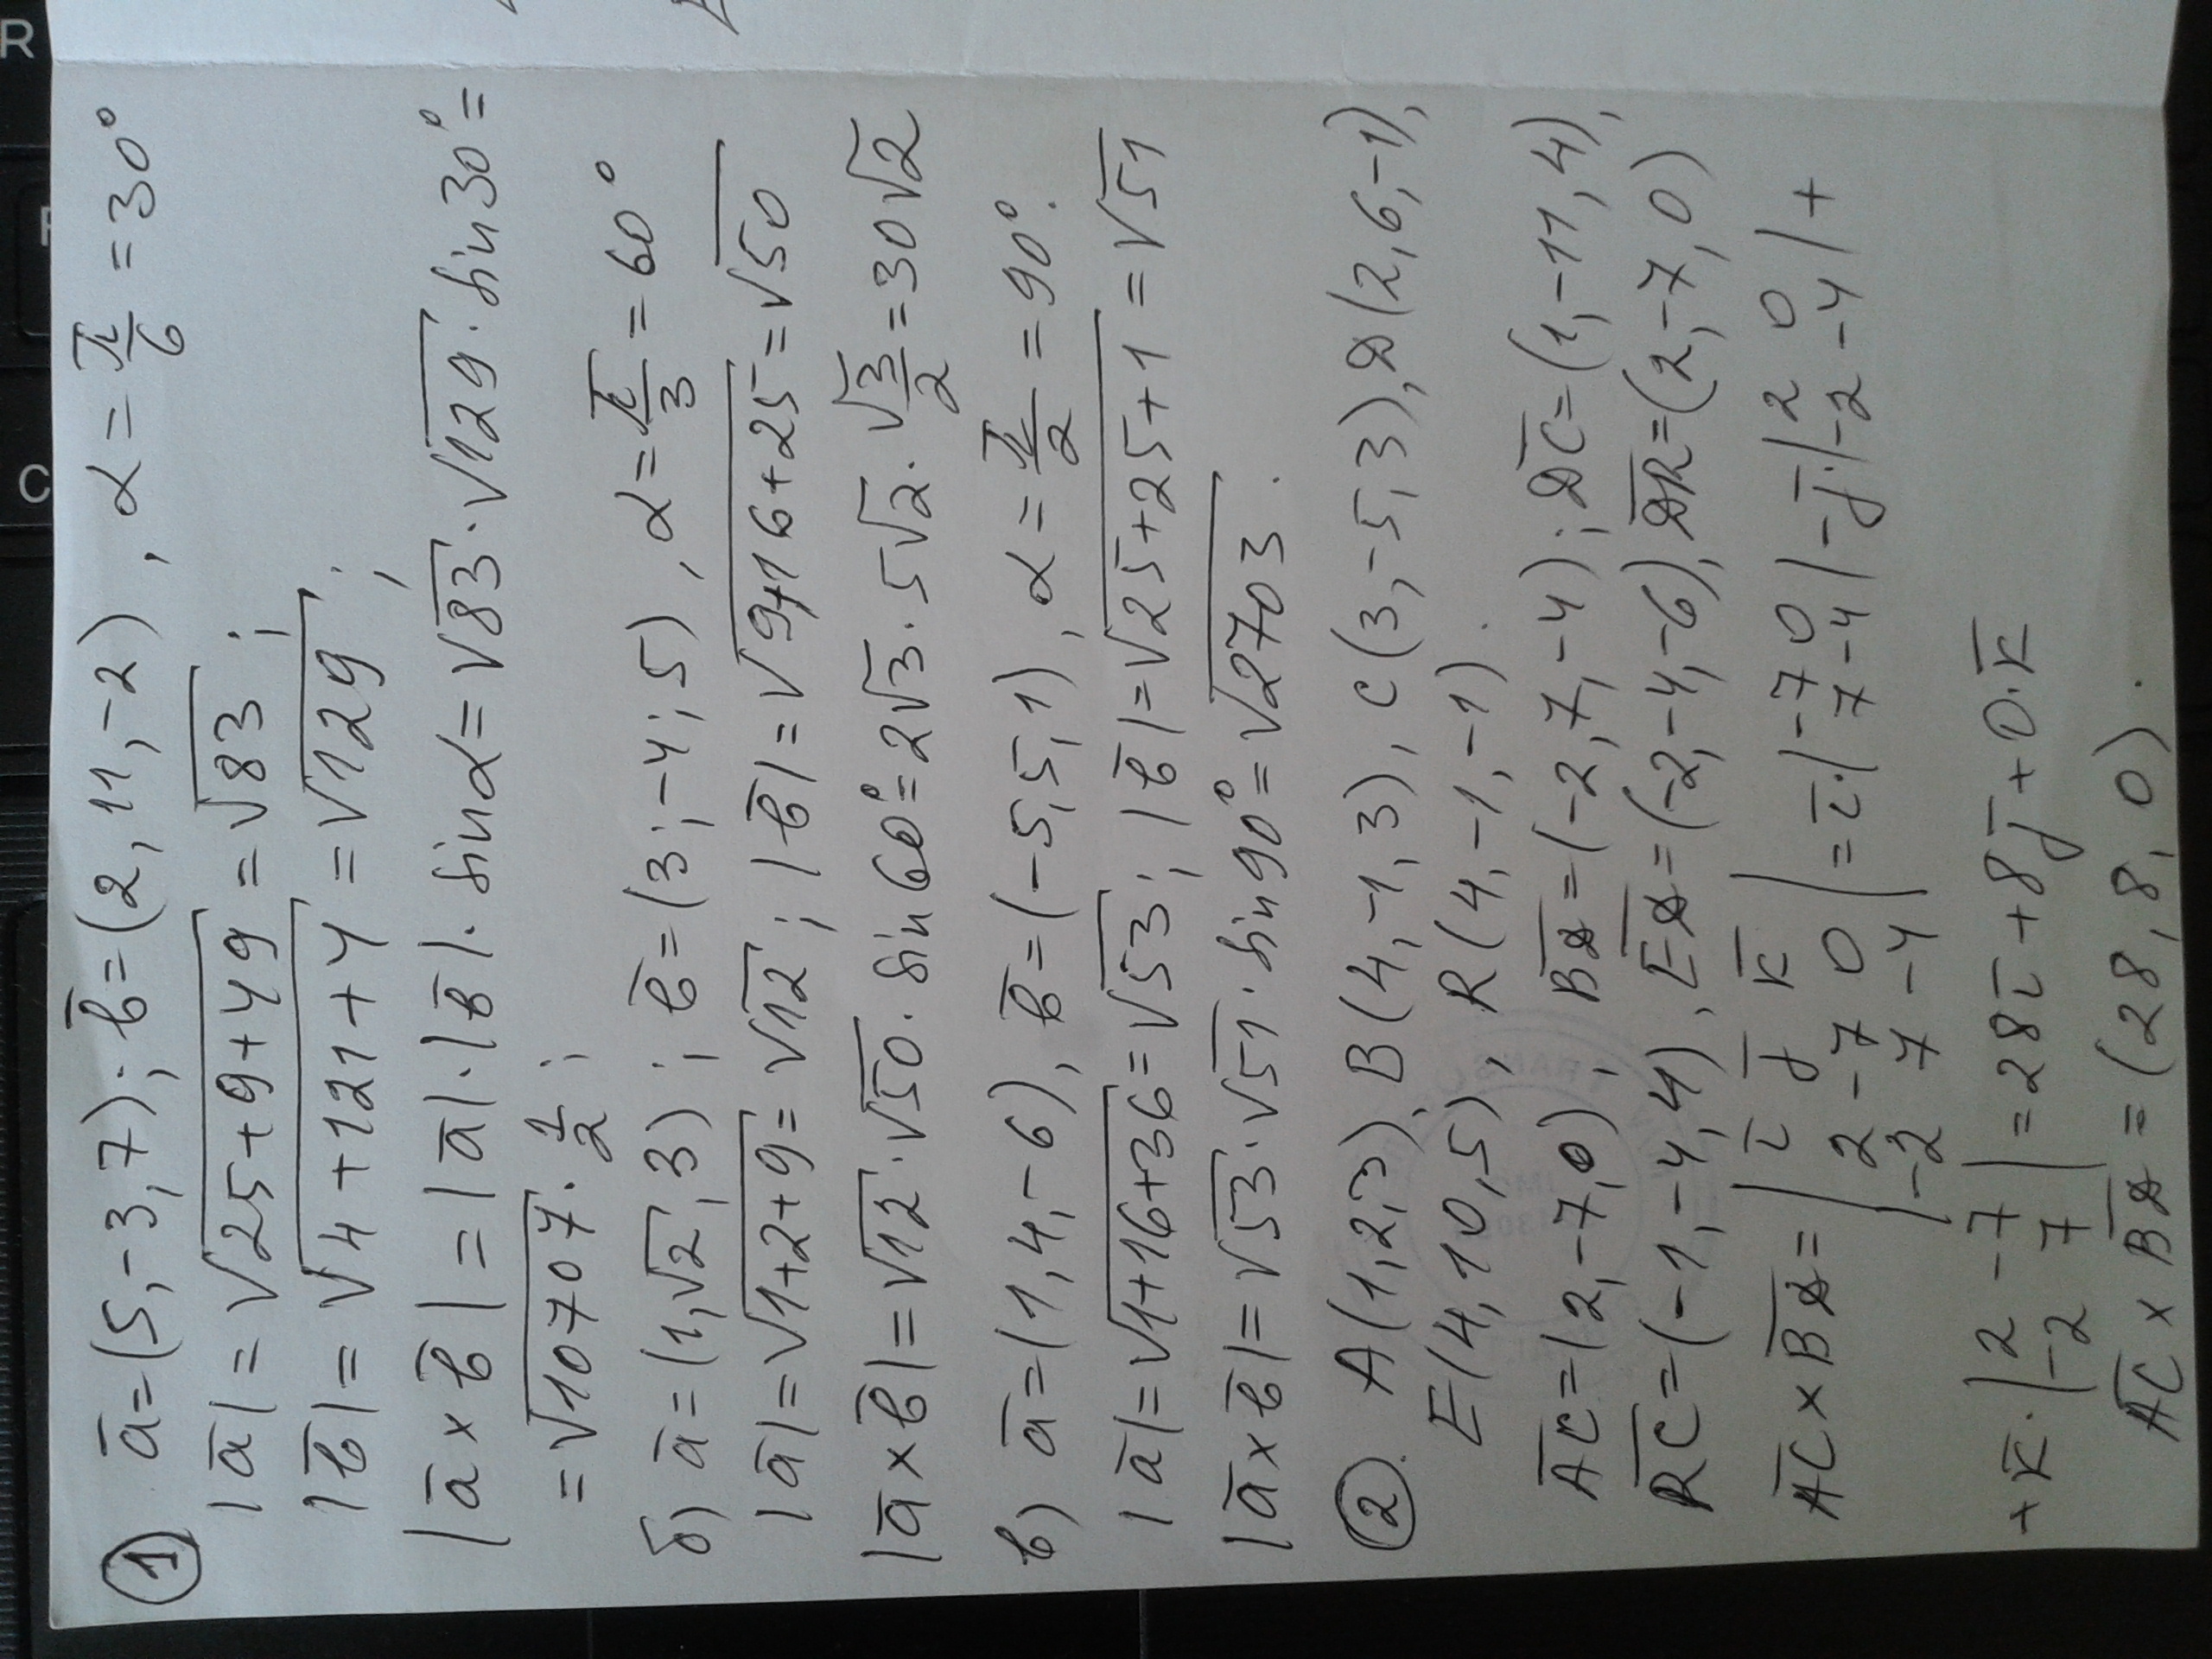 ① a̅=(5,-3,7); b̅=(2,11,-2), α=π/6=30°
|a̅|=√25+9+49=√83;
|b̅|=√4+121+4=√129;
|a̅×b̅|=|a̅|·|b̅|·sinα=√83·√129·sin30°=
=√10707·1/2;
б) a̅=(1,√2,3); b̅=(3;-4;5), α=π/3=60°
|a̅|=√1+2+9=√12; |b̅|=√9+16+25=√50
|a̅×b̅|=√12·√50·sin60°=2√3·5√2·√3/2=30√2
в) a̅=(1,4,-6), b̅=(-5,5,1), α=π/2=90°.
|a̅|=√1+16+36=√53; |b̅|=√25+25+1=√51
|a̅×b̅|=√53·√51·sin90°=√2703.
② A(1,2,3), B(4,-1,3), C(3,-5,3), D(2,6,-1),
E(4,10,5), R(4,-1,-1).
A̅C̅=(2,-7,0), B̅D̅=(-2,7,-4); D̅C̅=(1,-11,4),
R̅C̅=(-1,-4,4), E̅D̅=(-2,-4,-6), D̅R̅=(2,-7,0)
A̅C̅×B̅D̅=|i̅ j̅ k̅
2 -7 0
-2 7 -4|=i̅·|-7 0
7 -4|-j̅·|2 0
-2 -4|+
+k̅·|2 -7
-2 7|=28i̅+8j̅+0·k̅
A̅C̅×B̅D̅=(28,8,0).